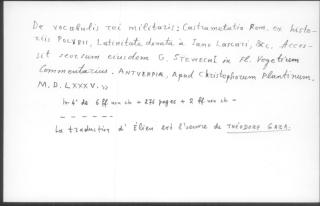 De vocabulis rei militaris; Castrametatio Rom. ex histo-
riis POLYBII, Latinitate donata à Jano Lascari, &c. Acces-
sit seorsum eiusdem G. STEWECHI in Fl. Vegetium
Commentarius. ANTVERPIÆ, Apud Christophorum Plantinum.
M. D. LXXXV. »
In-8° de 6 ff non ch + 276 pages + 2 ff non ch -
- - - - - -
La traduction d'Élien est l'œuvre de THÉODORE GAZA.